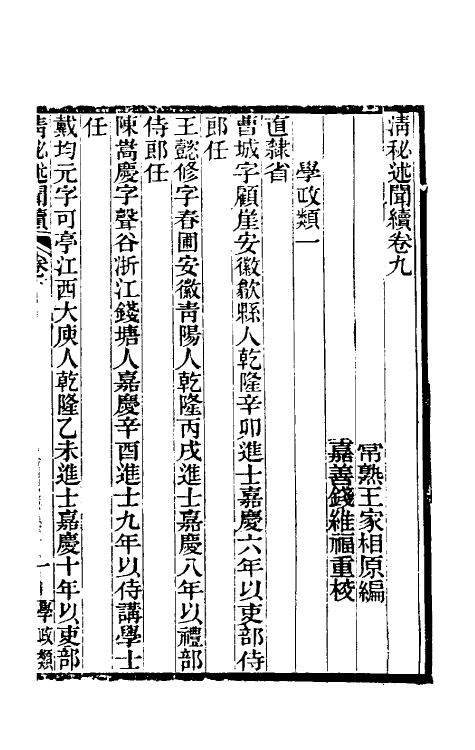 清秘述聞續卷九
常熟王家相原編
嘉善錢維福重校
學政類一
直隸省
曹城字顧崖安徽歙縣人乾隆辛卯進士嘉慶六年以吏部侍
郎任
王懿修字春圃安徽青陽人乾隆丙戌進士嘉慶八年以禮部
侍郎任
陳嵩慶字聲谷浙江錢塘人嘉慶辛酉進士九年以侍講學士
任
戴均元字可亭江西大庾人乾隆乙未進士嘉慶十年以吏部
清秘述聞續 卷
一
學政類